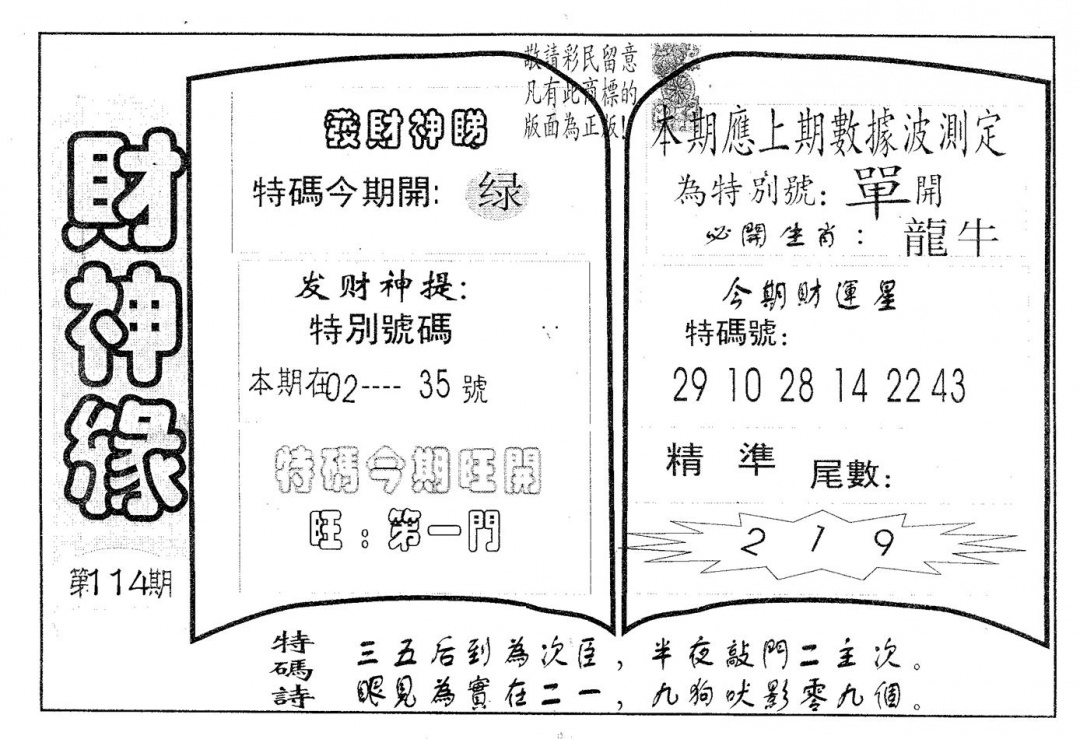 財神緣
第114期
敬請彩民留意
凡有此商標的
版面為正版!
發財神睇
特碼今期開: 绿
发财神提:
特別號碼
本期在02----35號
特碼今期旺開
旺:第一門
本期應上期數據波測定
為特別號: 單開
必開生肖: 龍牛
今期財運星
特碼號:
29 10 28 14 22 43
精準 尾數:
2 1 9
特碼詩
三五后到為次臣,半夜敲門二主次。
眼見為實在二一,九狗吠影零九個。